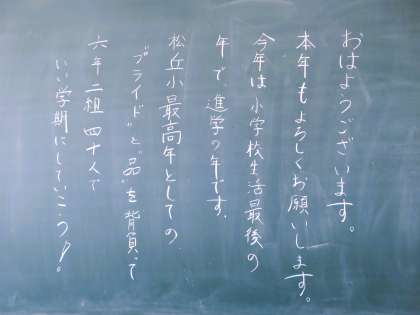 おはようございます。
本年もよろしくお願いします。
今年は小学校生活最後の
年で、進学の年です。
松丘小最高年としての
"プライド"と"品"を背負って
六年二組四十人で
いい学期にしていこう!。